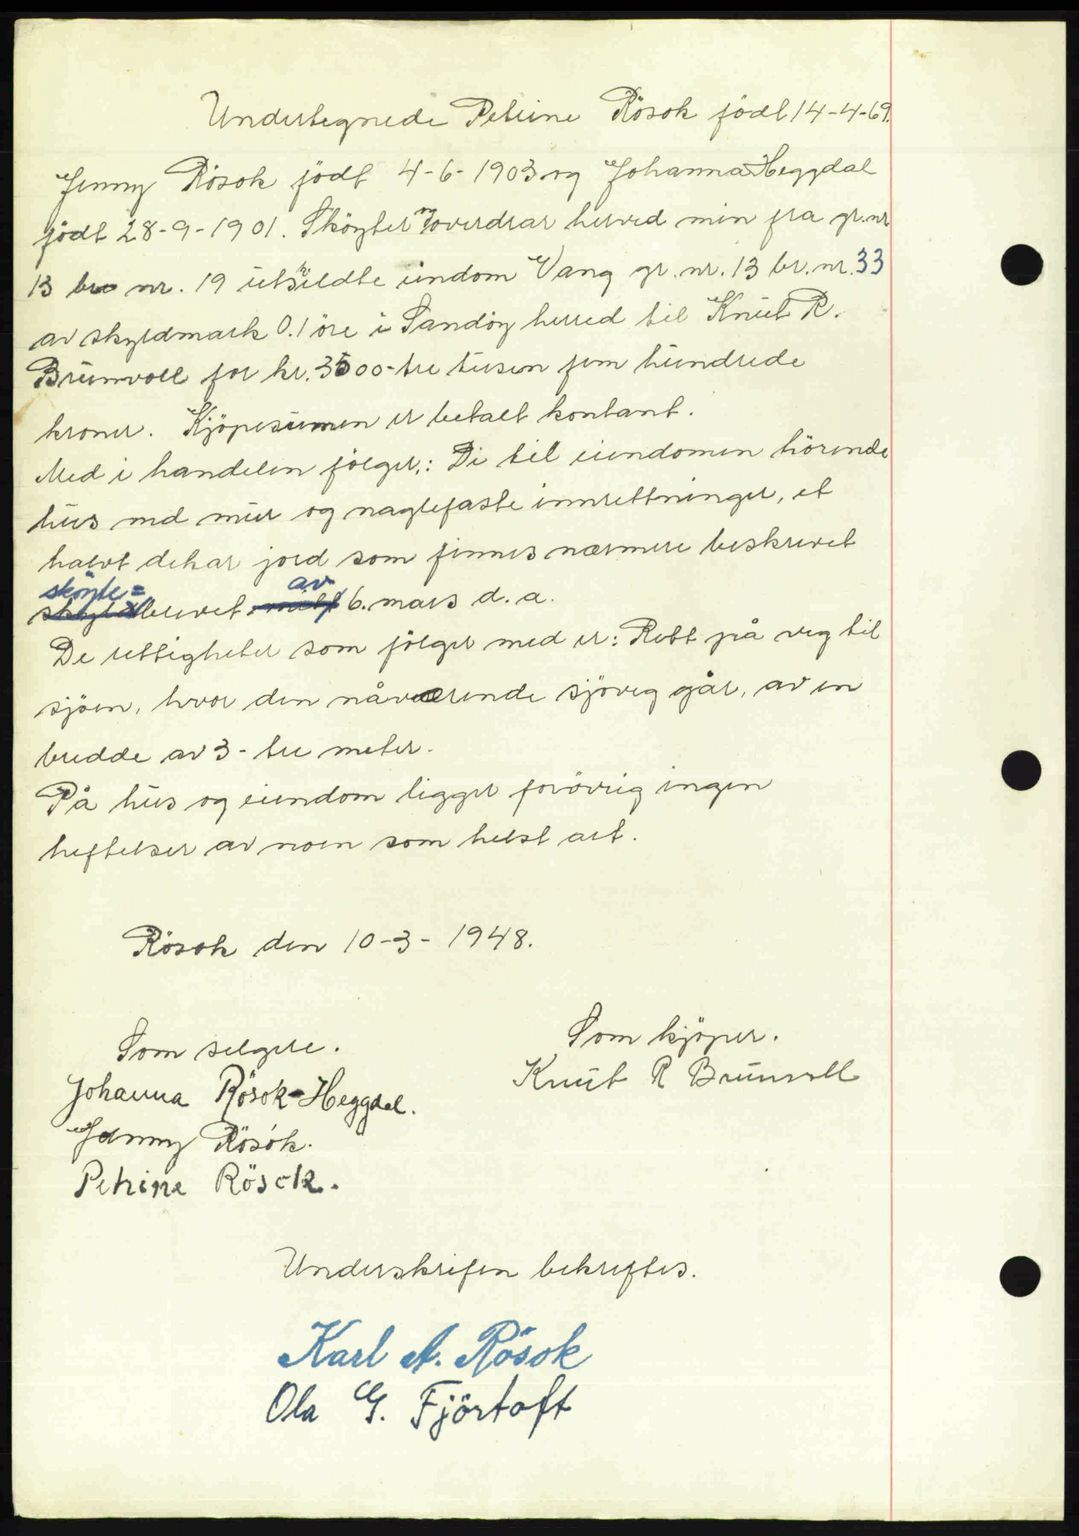 Undertegnede Petrine Rösok födt 14-4-69.
Jenny Rösok födt 4-6-1903 og Johanna Heggdal
födt 28-9-1901. Sköyter overdrar herved min fra gr.nr
13 br nr. 19 utskildte eindom Vang gr. nr. 13 br. nr. 33
av skyldmark 0.1 öre i Sandöy herred til Knut R.
Brunvoll for kr. 3500- tre tusen fem hundrede
kroner. Kjöpesummen er betalt kontant.
Med i handelen fölger,: De til eiendomen hörende
hus med mur og naglefaste innrettninger, et
halvt dekar jord som finnes nærmere beskrevet
sköyte= av
brevet 6. mars d. a.
De rettigheter som fölger med er: Rett på veg til
sjöen, hvor den nåværende sjöveg går, av en
bredde av 3- tre meter.
På hus og eiendom ligger forövrig ingen
heftelser av noen som helst art.
Rösok den 10-3-1948.
Som selgere.
Johanna Rösok-Heggdal.
Jenny Rösok.
Petrine Rösok.
Som kjöper.
Knut R Brunvoll
Underskrifen bekreftes.
Karl A. Rösok
Ola G. Fjörtoft